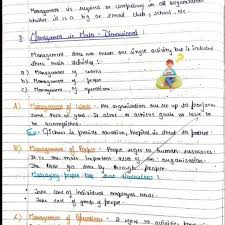 Management is required or compulsory in all organisation
whether it is a big or small club, school, etc.
3. Management is Multi - Dimensional :
Management does not mean one single activity but it includes
three main activity :
a) Management of works
b) Management of people
c) Management of operations
A) Management of Work - All organisation are set up to perform
some task or goal. It aims to achieve goals or task to
be accomplished.
Eg: School is provide education, hospital is to treat patient
B) Management of People - People refer to human resources.
It is the most important also of an organisation.
The task gets done by through people.
Managing people has two dimensions :
• Take care of individual employee needs.
• Take care of group of people.
C) Management of Operations - It refers to activities